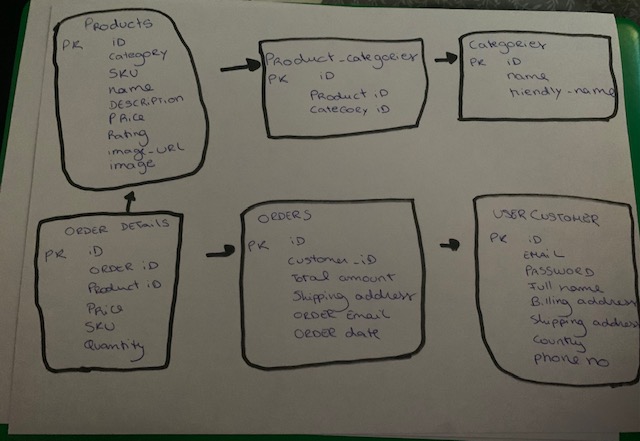 PRODUCTS
PK ID
CATEGORY
SKU
name
DESCRIPTION
PRice
Rating
image-URL
image
Product-categories
PK iD
Product iD
Category ID
Categories
PK iD
name
friendly-name
ORDER DETAILS
PK iD
ORDER iD
Product iD
PRice
SKU
Quantity
ORDERS
PK iD
Customer-iD
Total amount
Shipping address
ORDER Email
ORDER date
USER CUSTOMER
PK iD
EMAIL
PASSWORD
Full name
Billing address
Shipping address
Country
phone no